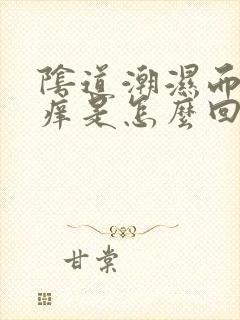 陰道潮濕而
痒是怎麼回
甘棠